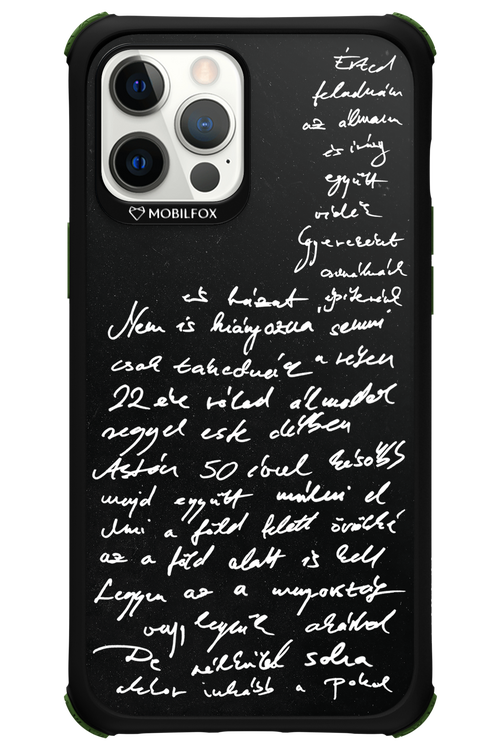 MOBILFOX
Érted
feladnám
az álmam
és írny
együtt
Gyereceket
csinálnánk
és házat építenénk
Nem is hiányozna semmi
csak takednánk a réten
22 éve rólad álmodok
reggel este délben
Aztán 50 évvel később
majd együtt múlni el
Ami a föld felett örökké
az a föld alatt is kell
Legyen az a mennyország
vagy legyünk akárhol
De nélküled soha
akkor inkább a Pokol